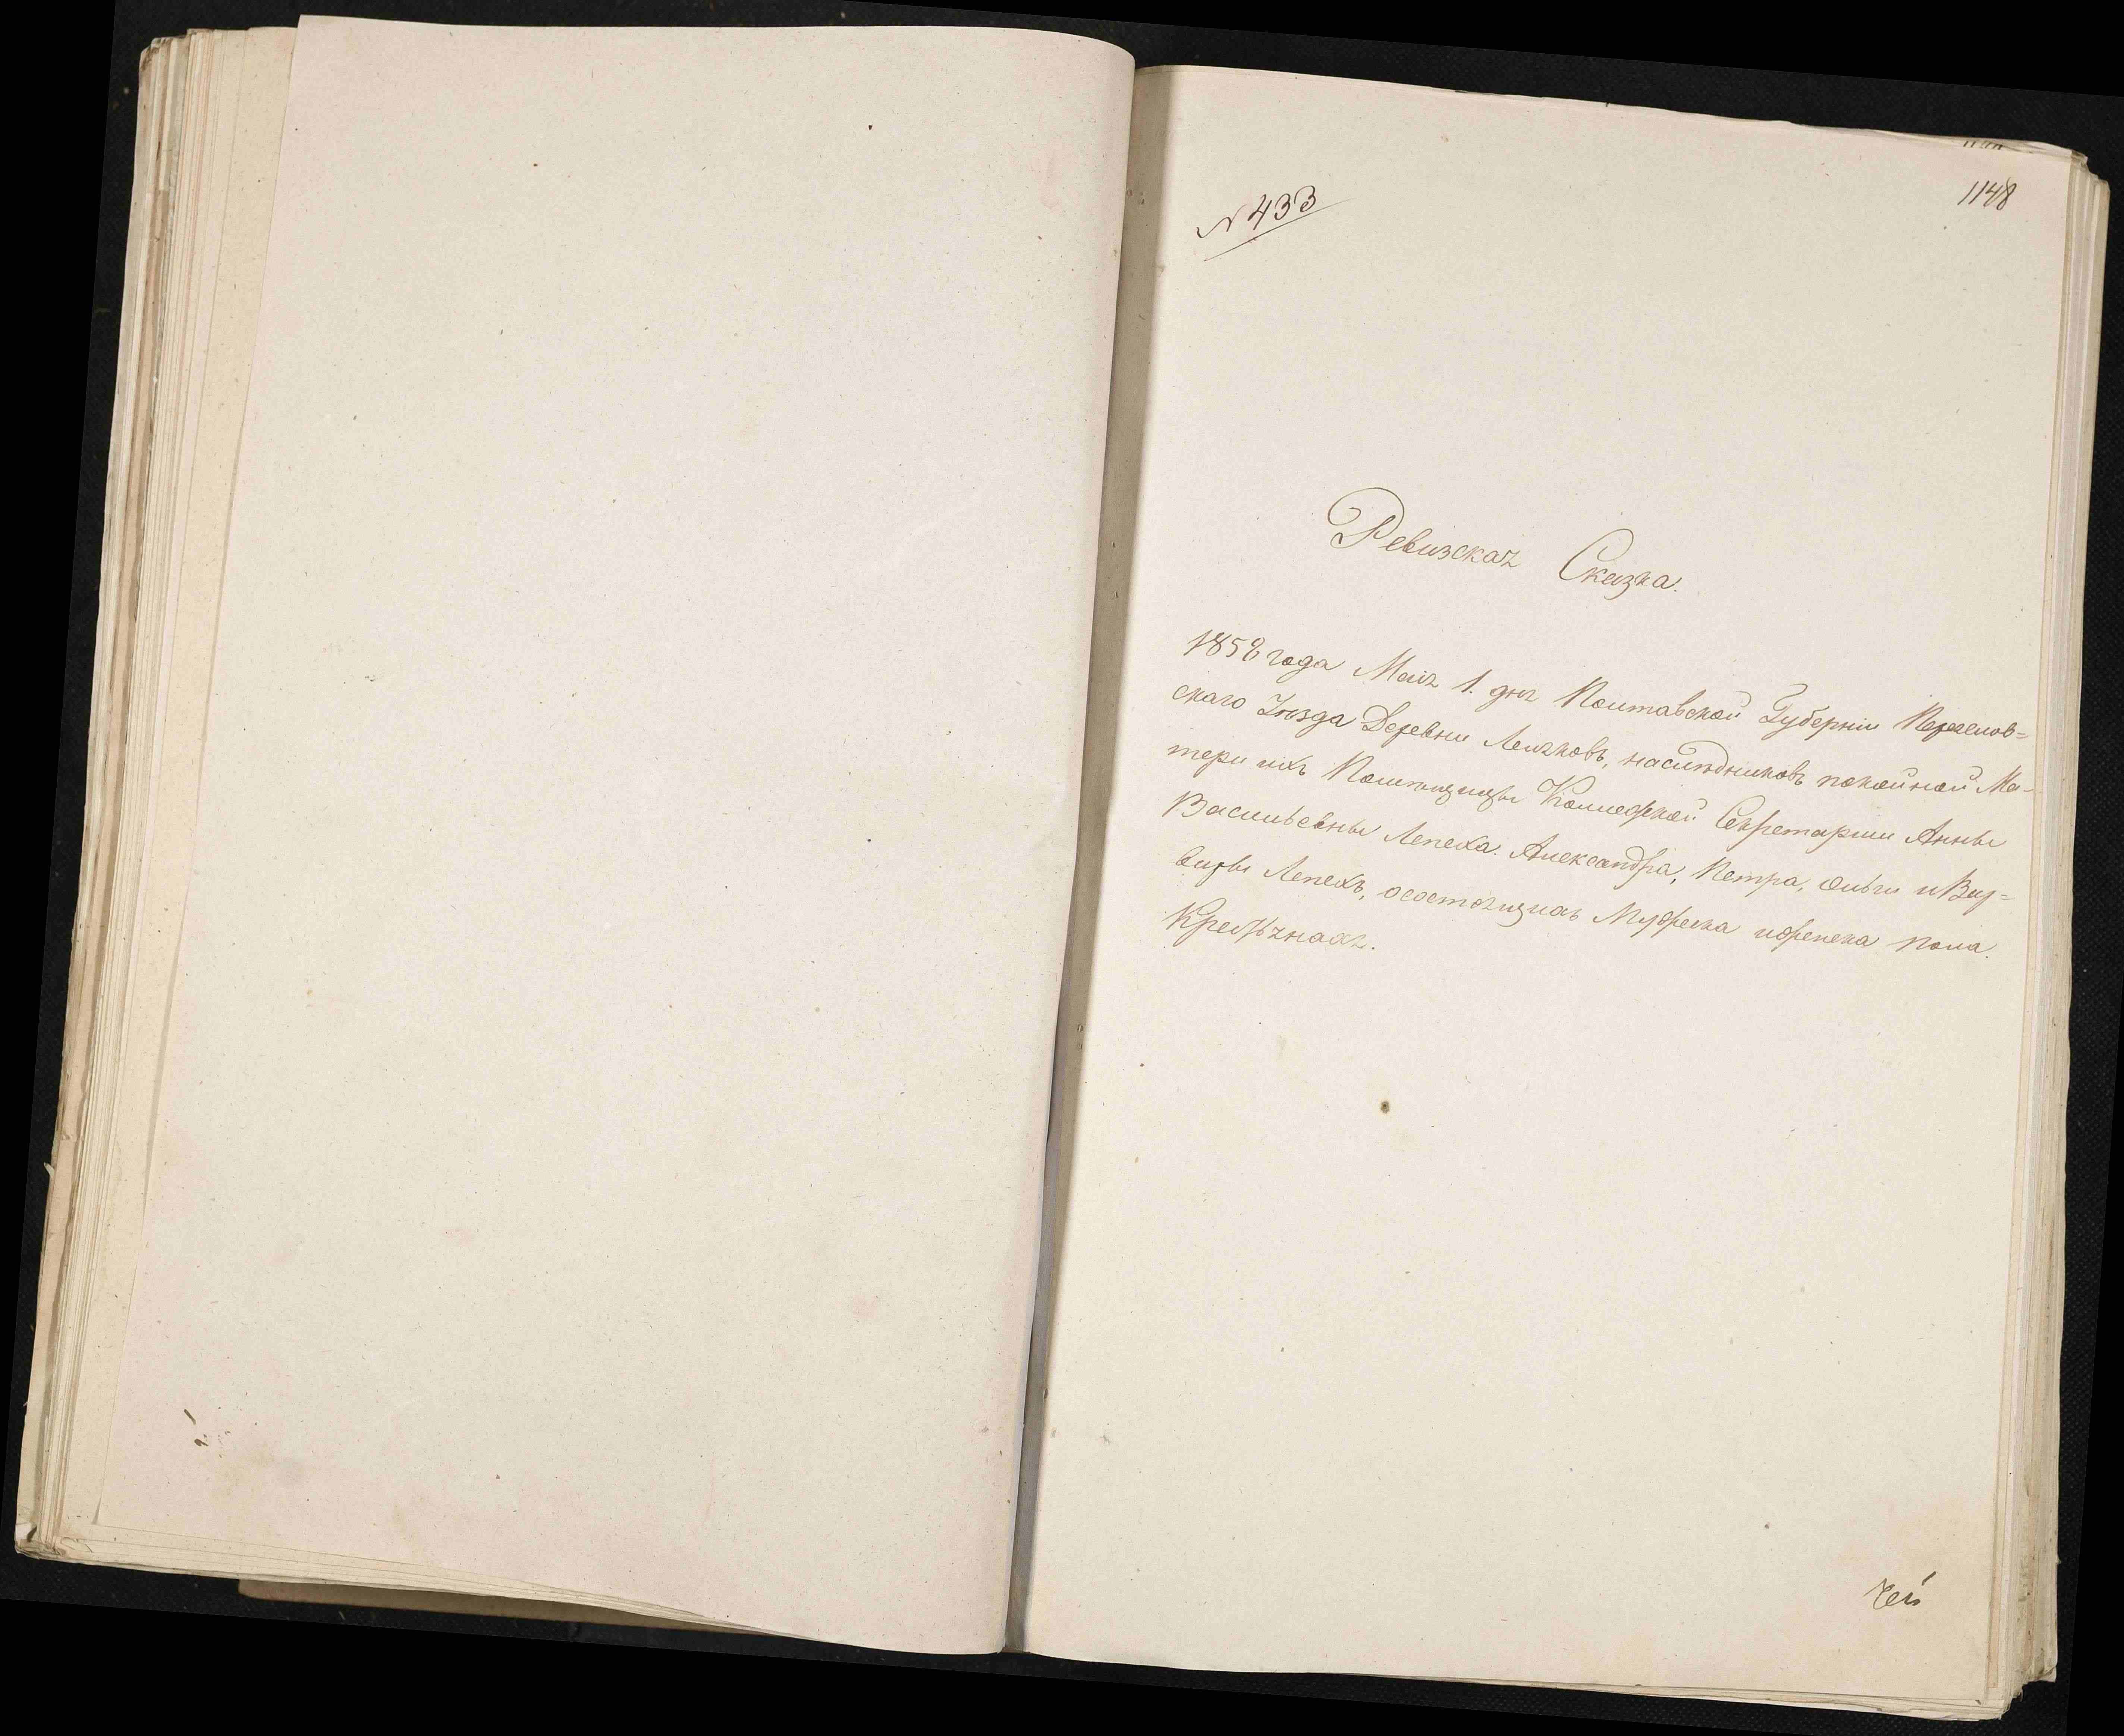 № 433
1148
Ревизская Сказка.
1858 года Маія 1. дня Полтавской Губерніи Переяслов=
скаго Уѣзда Деревни Лялковъ, наслѣдниковъ покойной Ма-
тери ихъ Помѣщицы Коллежской Секретарши Анны
Васильевны Лепеха. Александра, Петра, Ольги и Вар=
вары Лепехъ, осостоящихъ Мужеска иженска пола
Крестьянахъ.